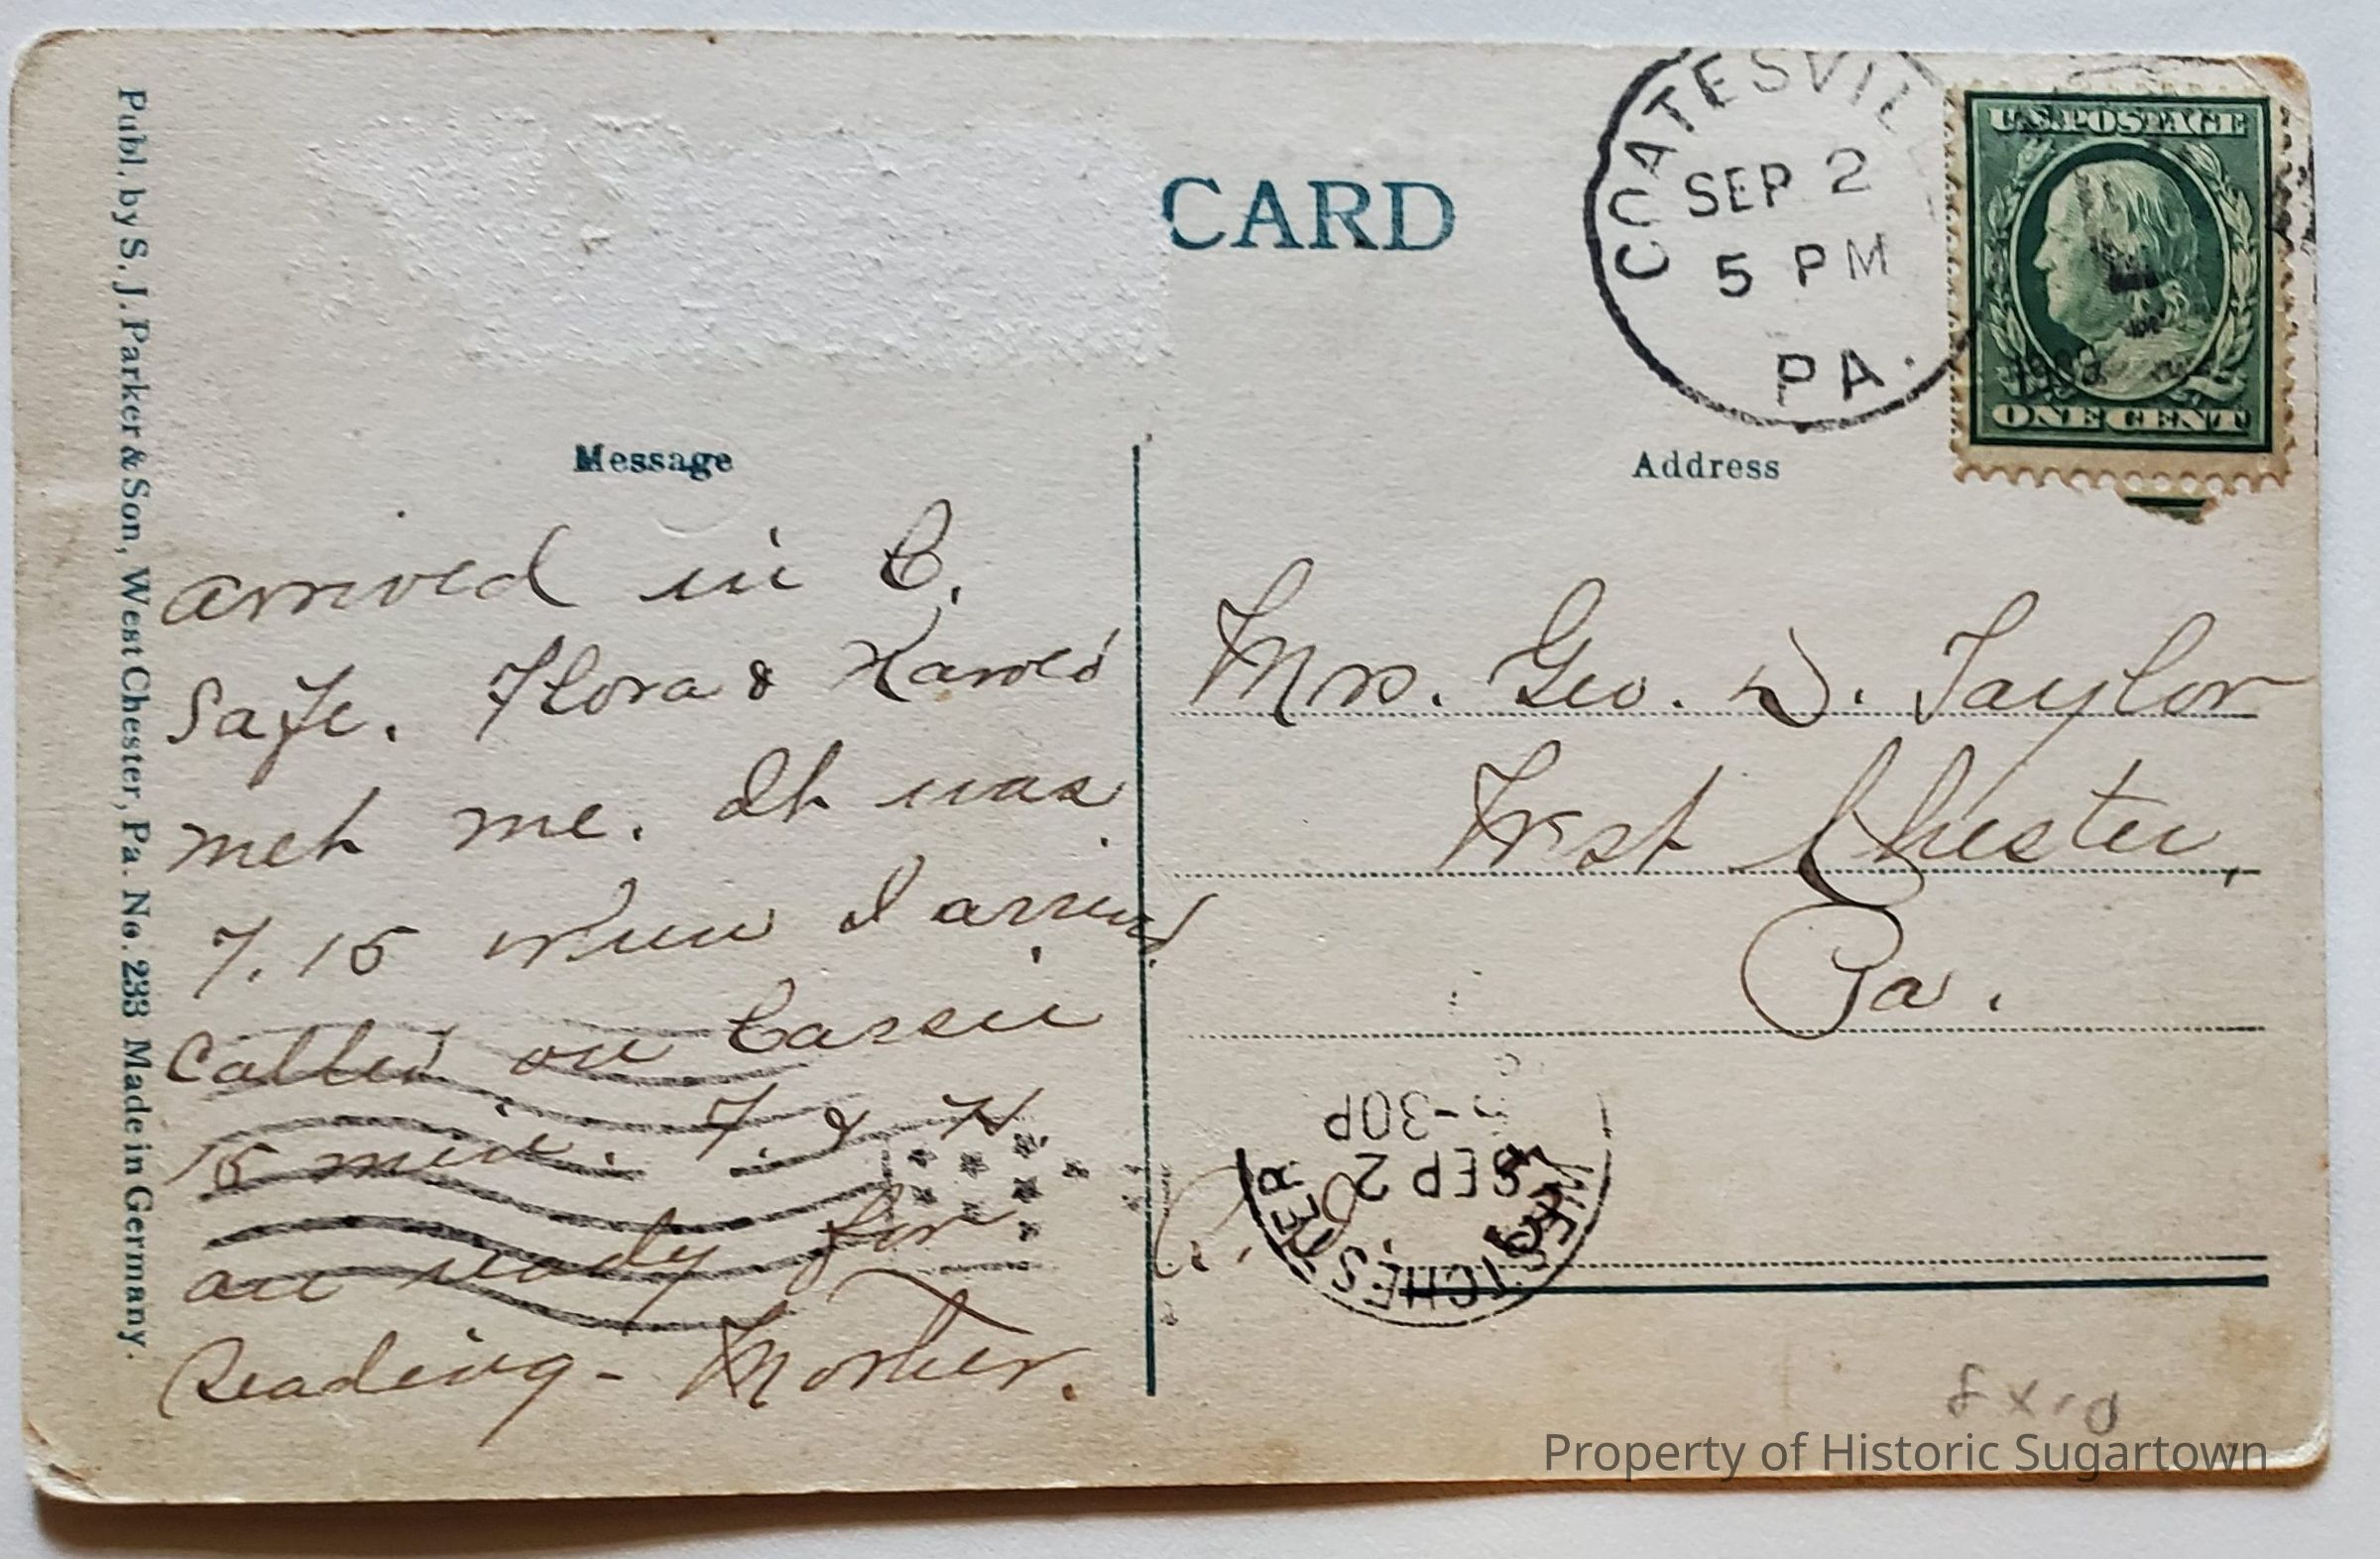 CARD
COATESVILLE
SEP 2
5 PM
PA.
U.S. POSTAGE
1909
ONE CENT
Message
Address
arrived in C.
Safe. Flora & Harold
met me. It was
7.15 when I arrived.
Called on Cassie
15 min. F. & H.
are ready for
Reading- Mother.
Mrs. Geo. D. Taylor
West Chester,
Pa.
WEST CHESTER
SEP 2
-30P
Publ. by S. J. Parker & Son, West Chester, Pa. No. 233 Made in Germany.
Property of Historic Sugartown